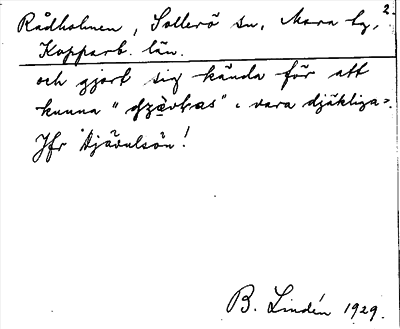 2.
Rådholmen, Sollerö sn, Mora tg,
Kopparb. län.
och gjort sig kända för att
kunna " " = vara djäkliga =.
Jfr Djävulsön!
B. Lindén 1929.